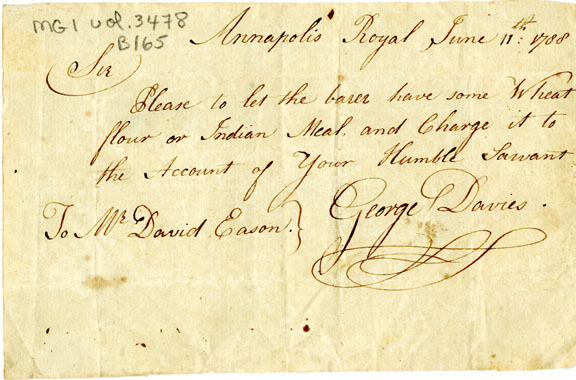 MG1 vol. 3478
B165
Annapolis Royal June 11th: 1788
Sir
Please to let the barer have some Wheat
flour or Indian Meal. and Charge it to
the Account of Your Humble Sarvant
George Davies.
To Mr. David Eason.